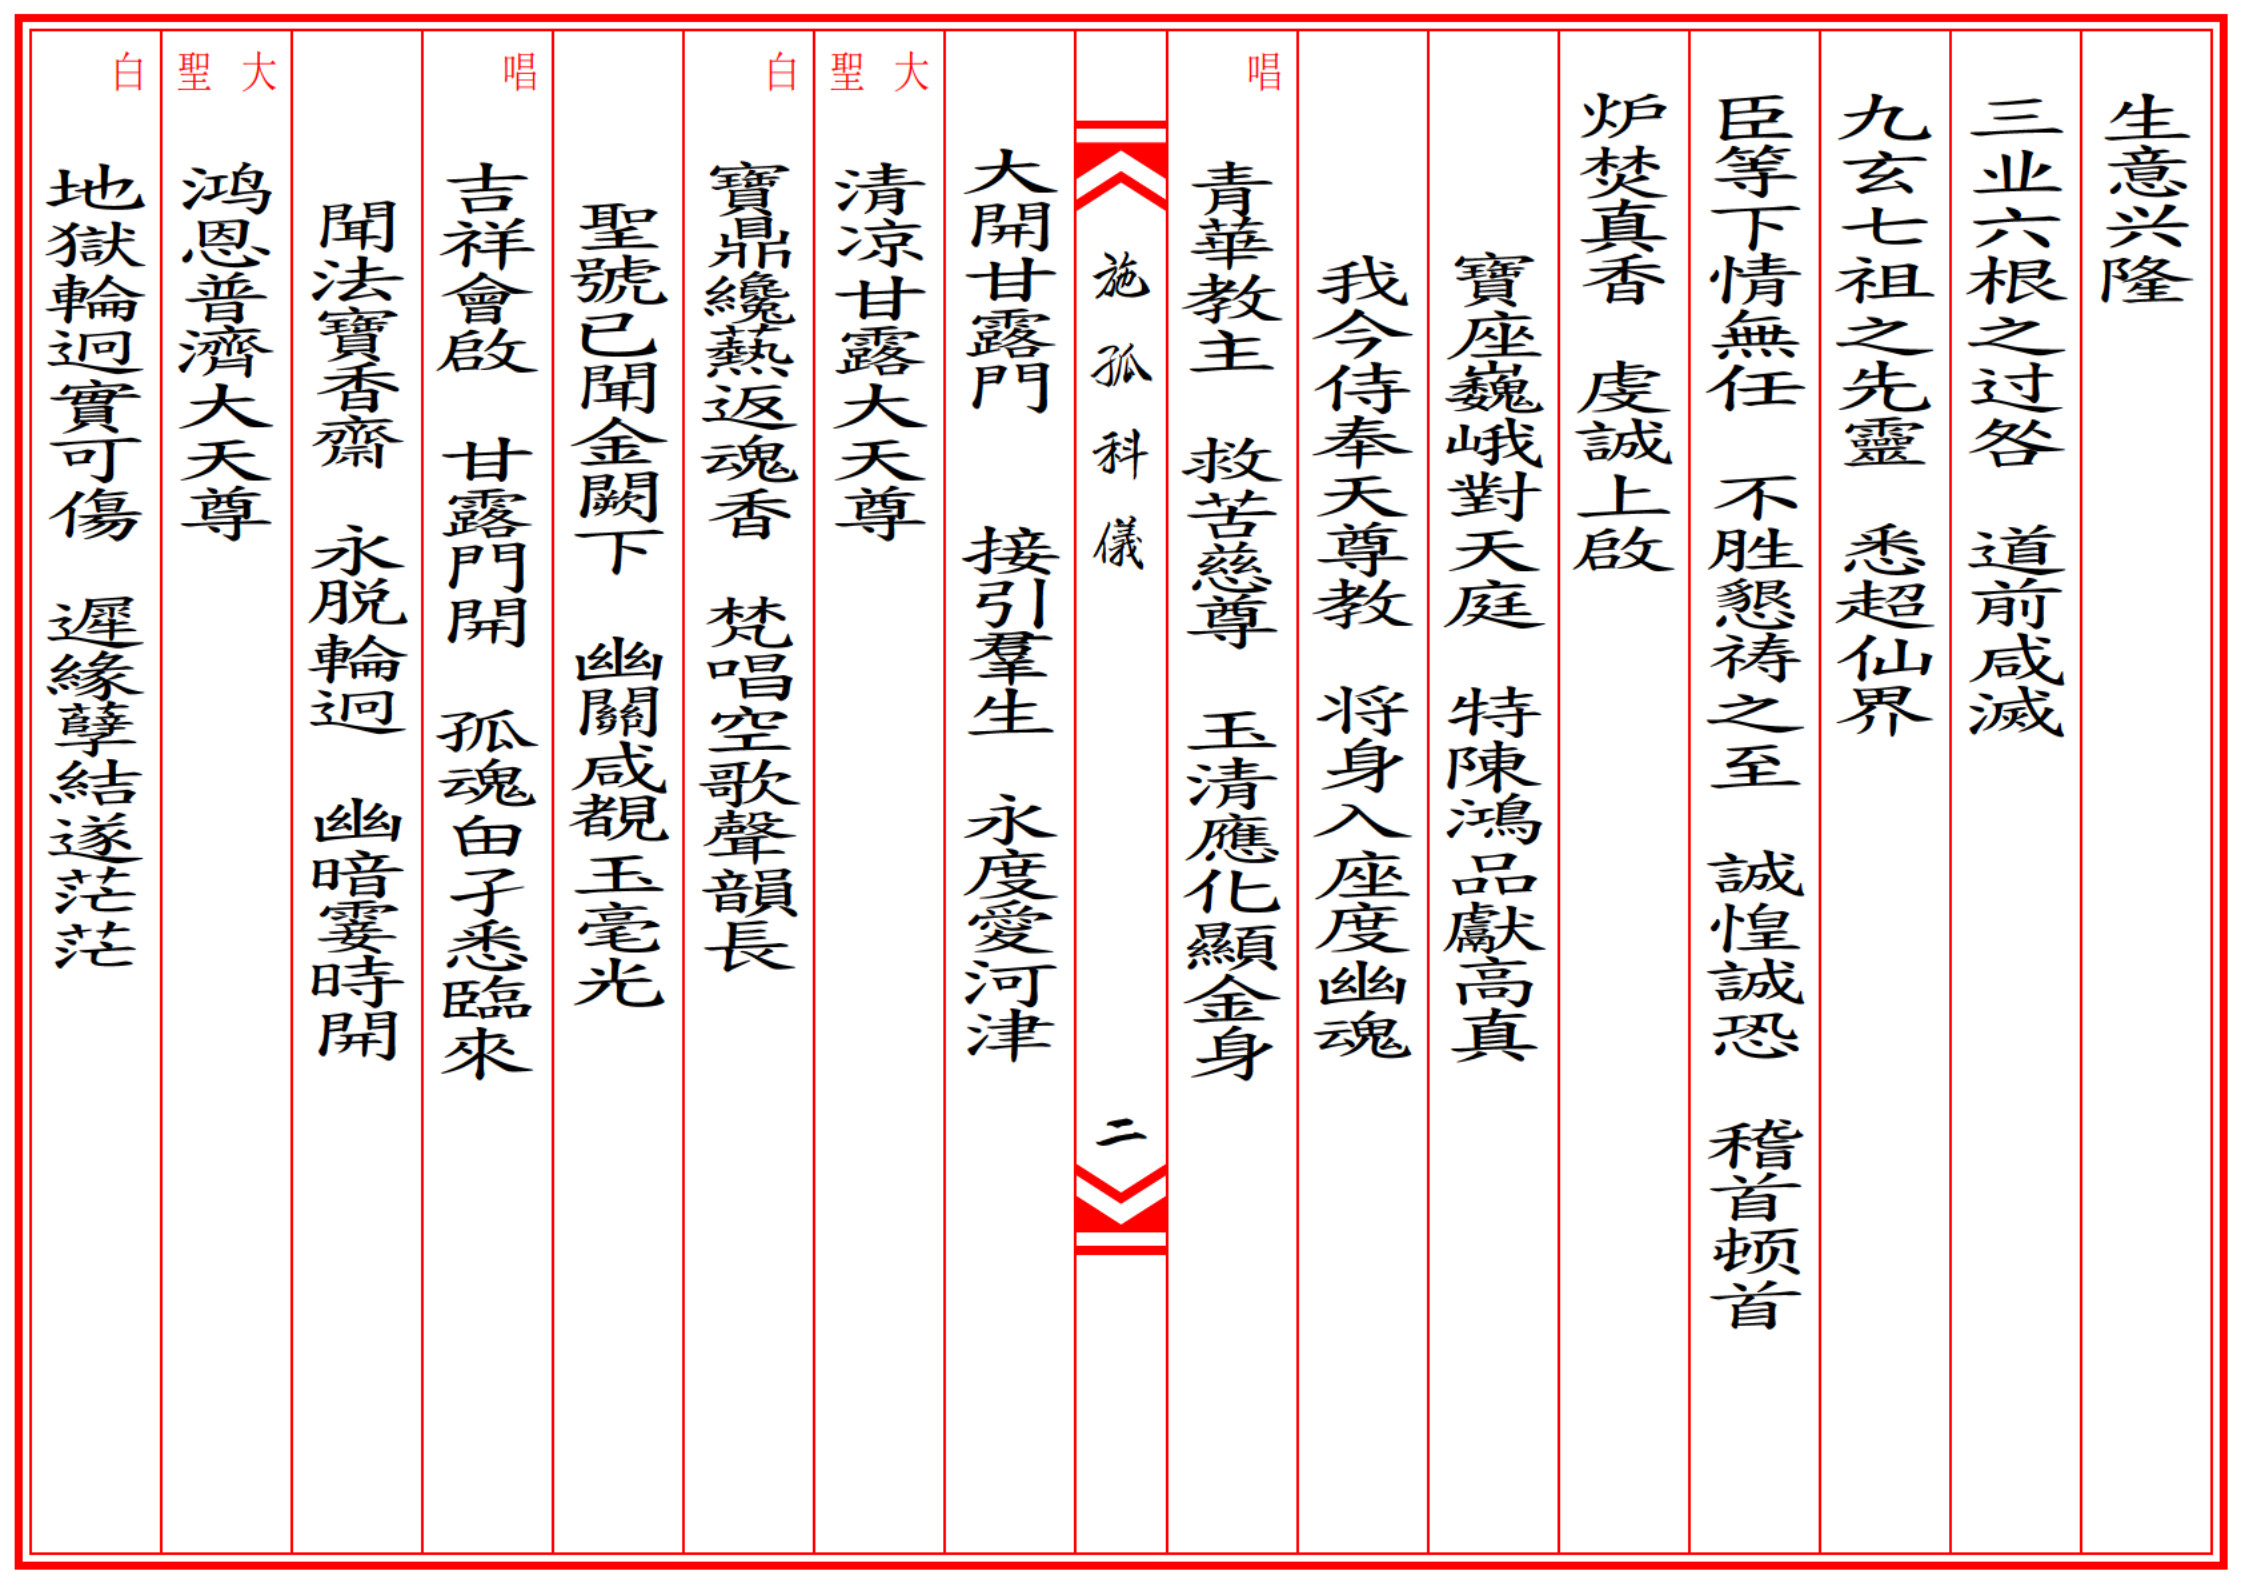 生意兴隆
三业六根之过咎　道前咸滅
九玄七祖之先靈　悉超仙界
臣等下情無任　不胜懇祷之至　誠惶誠恐　稽首顿首
炉焚真香　虔誠上啟
寶座巍峨對天庭　特陳鴻品獻高真
我今侍奉天尊教　将身入座度幽魂
唱
青華教主　救苦慈尊　玉清應化顯金身
施孤科儀　二
大開甘露門　接引羣生　永度愛河津
大聖
清凉甘露大天尊
白
寶鼎纔爇返魂香　梵唱空歌聲韻長
聖號已聞金闕下　幽關咸覩玉毫光
唱
吉祥會啟　甘露門開　孤魂由子悉臨來
聞法寶香齋　永脱輪迴　幽暗霎時開
大聖
鸿恩普濟大天尊
白
地獄輪迴實可傷　遲緣孽結遂茫茫